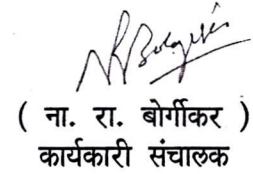 ( ना. रा. बोर्गीकर )
कार्यकारी संचालक